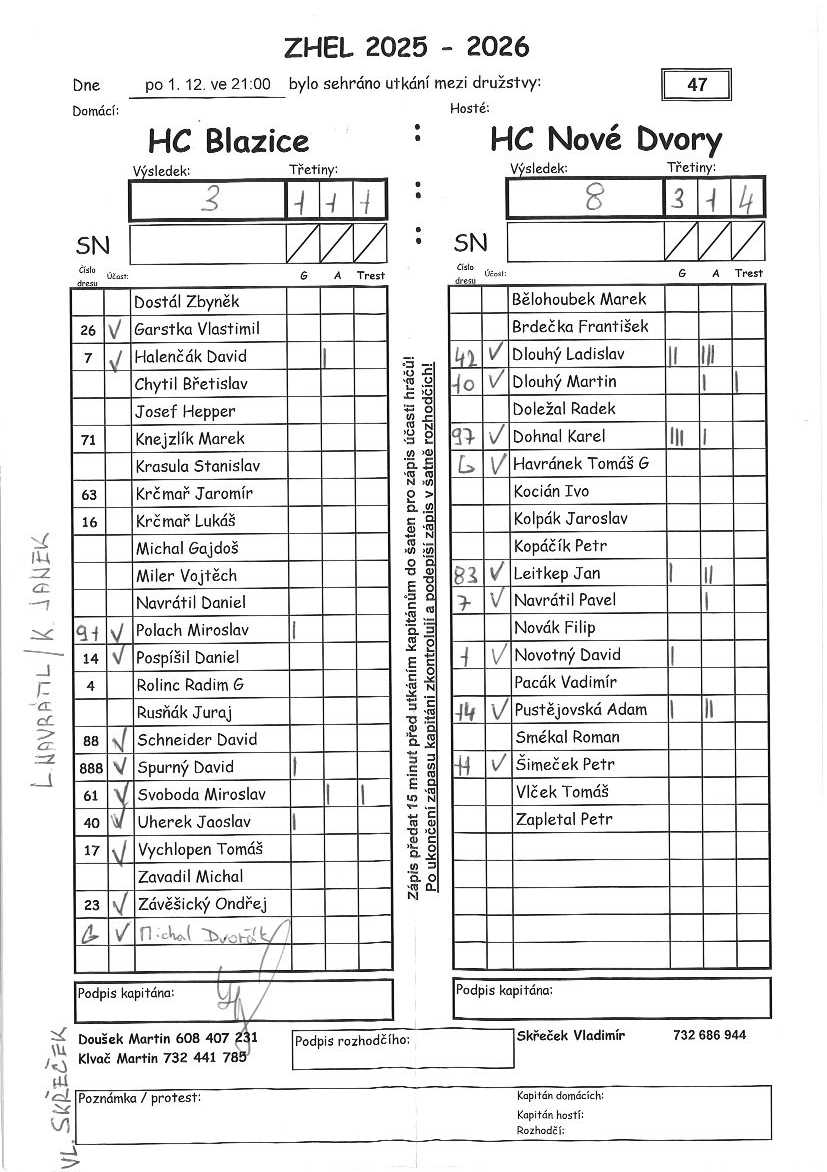 ZHEL 2025 - 2026
Dne po 1. 12. ve 21:00 bylo sehráno utkání mezi družstvy: 47
Domácí: Hosté:
HC Blazice : HC Nové Dvory
Výsledek: Třetiny: Výsledek: Třetiny:
3 1 1 1 : 8 3 1 4
SN : SN
Číslo dresu Účast: G A Trest
Dostál Zbyněk
26 V Garstka Vlastimil
7 V Halenčák David |
Chytil Břetislav
Josef Hepper
71 Knejzlík Marek
Krasula Stanislav
63 Krčmař Jaromír
16 Krčmař Lukáš
Michal Gajdoš
Miler Vojtěch
Navrátil Daniel
91 V Polach Miroslav |
14 V Pospíšil Daniel
4 Rolinc Radim G
Rusňák Juraj
88 V Schneider David
888 V Spurný David |
61 V Svoboda Miroslav | |
40 V Uherek Jaoslav |
17 V Vychlopen Tomáš
Zavadil Michal
23 V Závěšický Ondřej
G V Michal Dvořák
Podpis kapitána:
Číslo dresu Účast: G A Trest
Bělohoubek Marek
Brdečka František
42 V Dlouhý Ladislav || |||
10 V Dlouhý Martin | |
Doležal Radek
97 V Dohnal Karel ||| |
G V Havránek Tomáš G
Kocián Ivo
Kolpák Jaroslav
Kopáčík Petr
83 V Leitkep Jan | ||
7 V Navrátil Pavel |
Novák Filip
1 V Novotný David |
Pacák Vadimír
14 V Pustějovská Adam | ||
Smékal Roman
11 V Šimeček Petr
Vlček Tomáš
Zapletal Petr
Podpis kapitána:
Zápis předat 15 minut před utkáním kapitánům do šaten pro zápis účasti hráčů!
Po ukončení zápasu kapitáni zkontrolují a podepíší zápis v šatně rozhodčích!
L NAVRÁTIL / K. JANEK
VL. SKŘEČEK
Doušek Martin 608 407 231
Klvač Martin 732 441 785
Podpis rozhodčího:
Skřeček Vladimír 732 686 944
Poznámka / protest:
Kapitán domácích:
Kapitán hostí:
Rozhodčí: